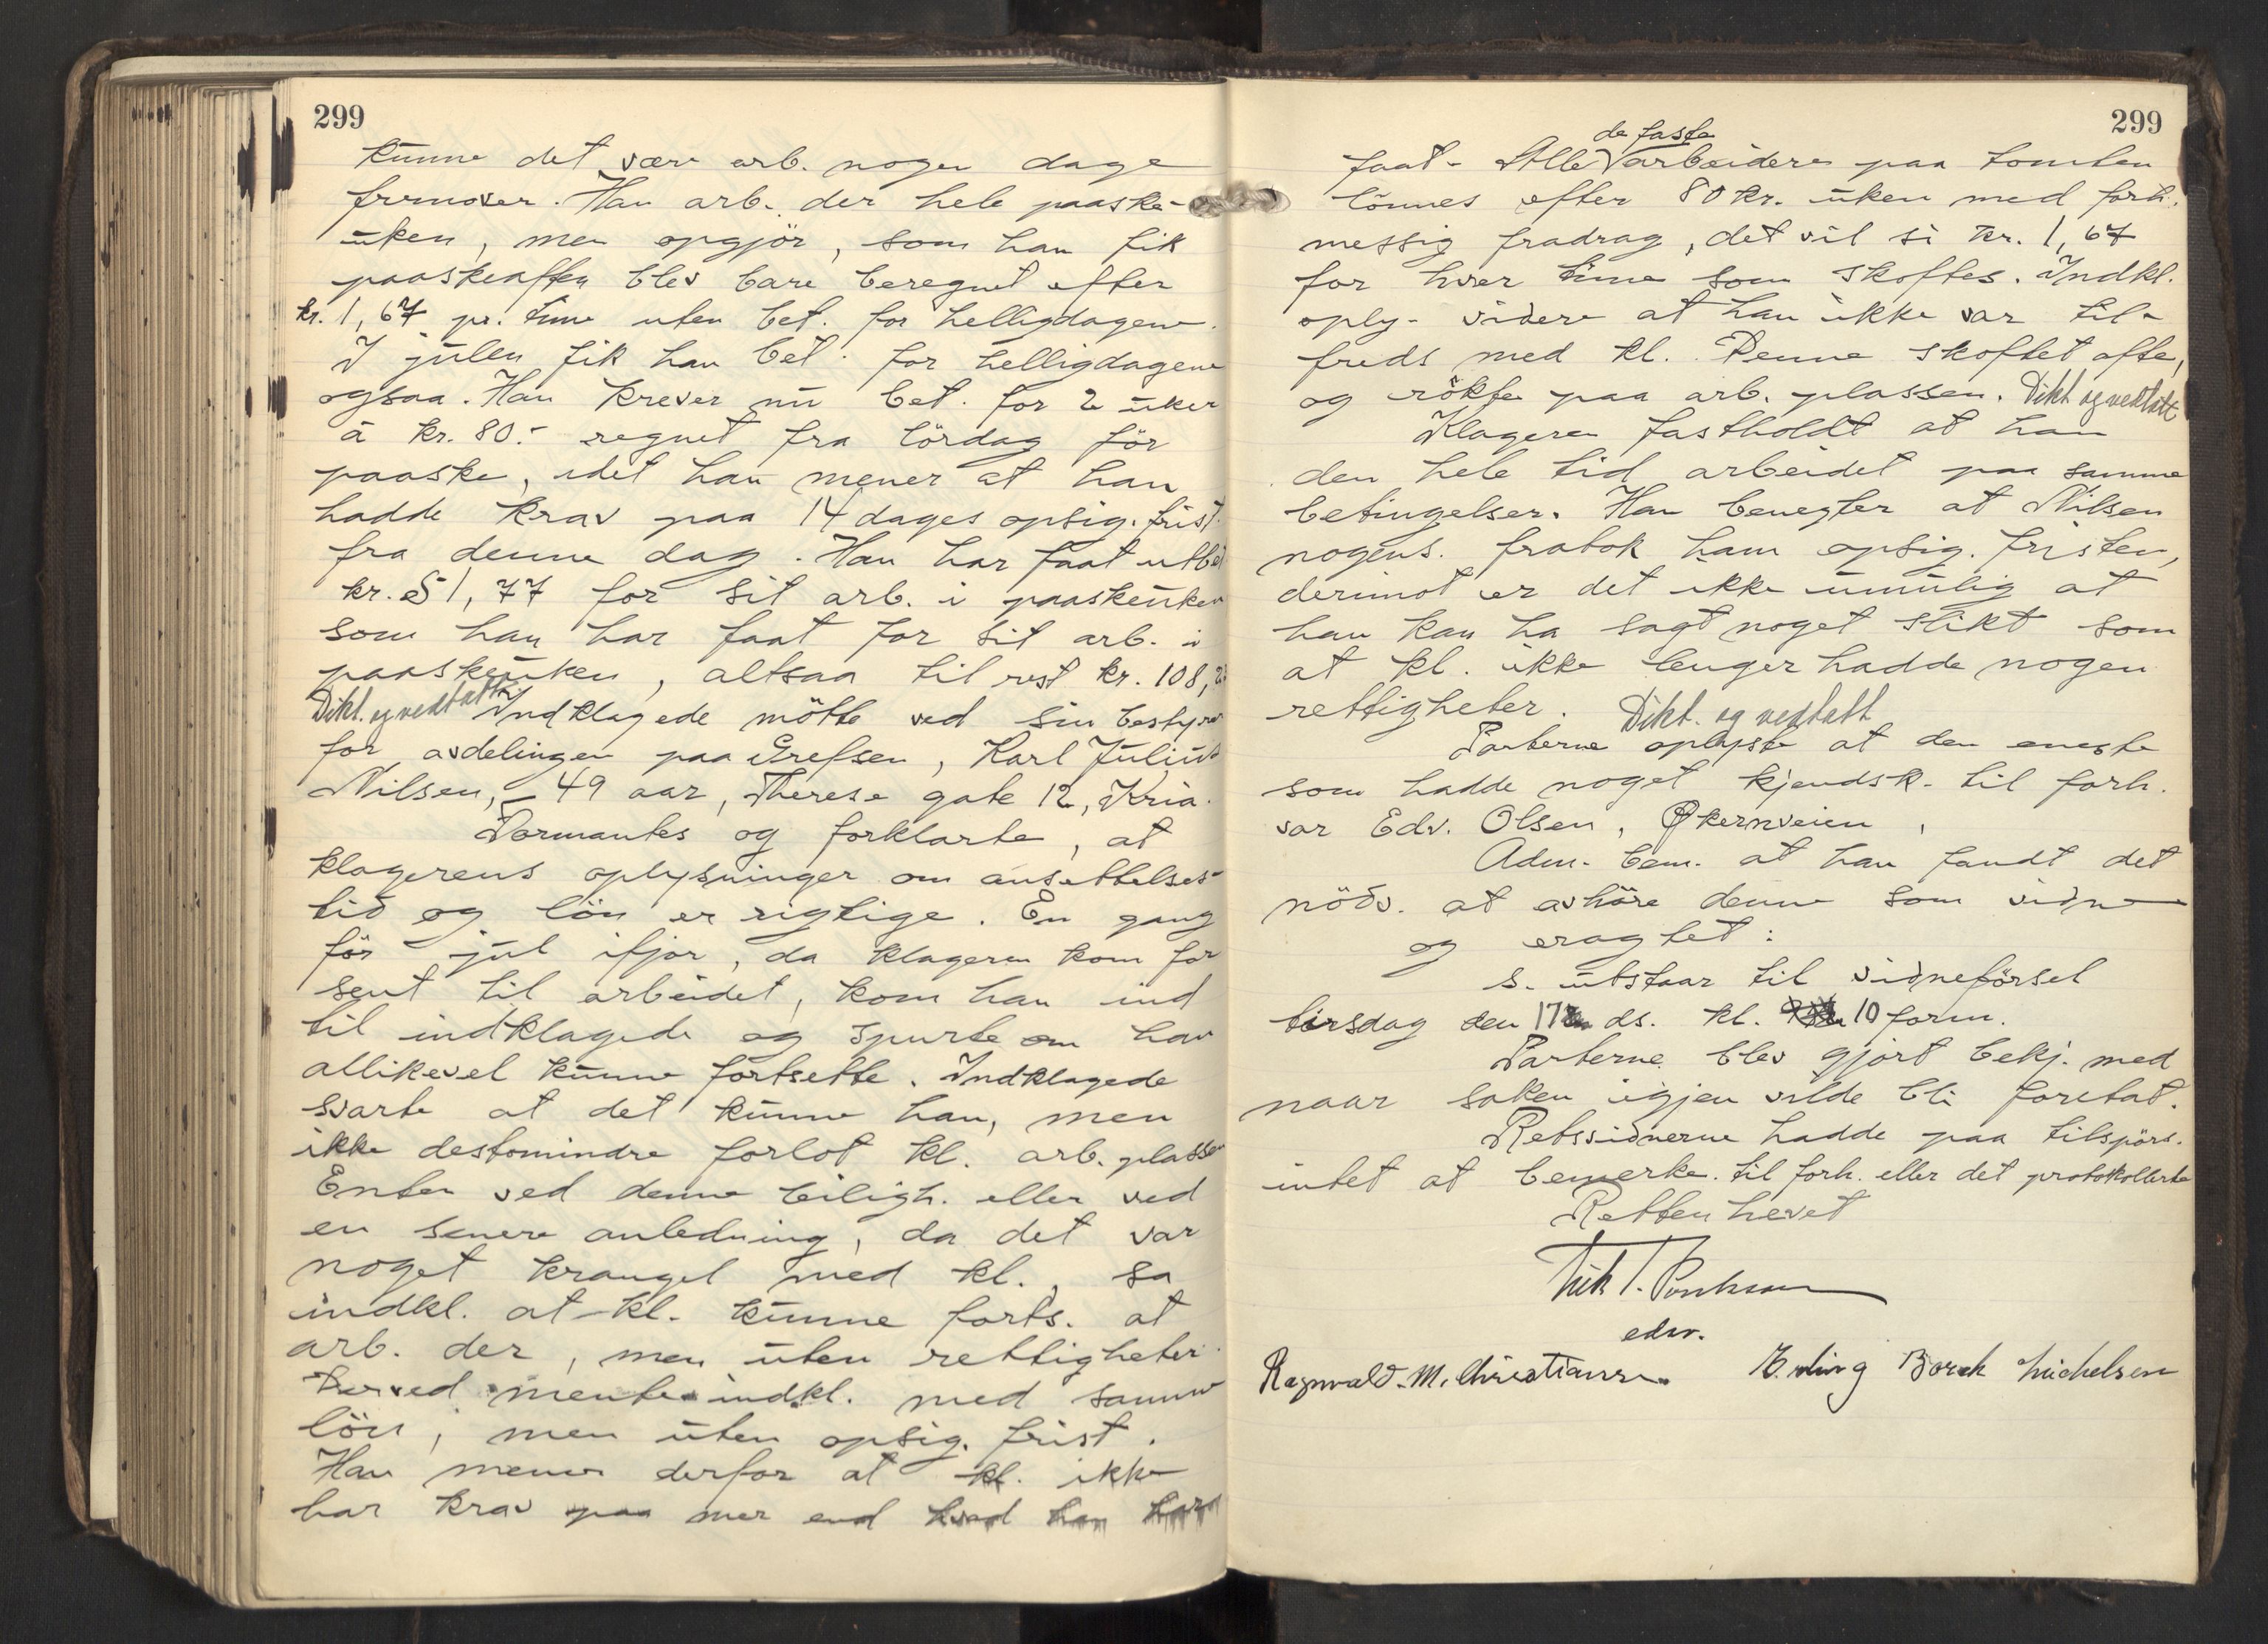 299
kunne det være arb. nogen dage
fremover. Han arb. der hele paaske-
uken, men opgjör, som han fik
paaskeaften blev bare beregnet efter
kr. 1,67 pr. time uten bet. for helligdagene.
I julen fik han bet. for helligdagene
ogsaa. Han krever nu bet. for 2 uker
à kr. 80.- regnet fra lördag för
paaske, idet han mener at han
hadde krav paa 14 dages opsig. frist
fra denne dag. Han har faat utbet
kr. 51,77 for sit arb. i paaskeuken
som han har faat for sit arb. i
paaskeuken, altsaa til rest kr. 108,23
Dikt. og vedtatt
Indklagede mötte ved sin bestyrer
for avdelingen paa Grefsen, Karl Julius
Nilsen, 49 aar, Therese gate 12, Kria.
Formantes og forklarte, at
klagerens oplysninger om ansettelses-
tid og lön er rigtige. En gang
för jul ifjor, da klageren kom for
sent til arbeidet, kom han ind
til indklagede og spurte om han
allikevel kunne fortsette. Indklagede
svarte at det kunne han, men
ikke destomindre forlot kl. arb. plassen
Enten ved denne leiligh. eller ved
en senere anledning, da det var
noget krangel med kl., sa
indkl. at kl. kunne forts. at
arb. der, men uten rettigheter.
Herved mente indkl. med samme
lön, men uten opsig. frist.
Han mener derfor at kl. ikke
har krav paa mer end hvad han har
299
de faste
faat. Alle arbeidere paa tomten
lönnes efter 80 kr. uken med forh.
messig fradrag, det vil si kr. 1,67
for hver time som skoftes. Indkl.
oply. videre at han ikke var til-
freds med kl. Denne skoftet ofte,
og rökte paa arb. plassen. Dikt og vedtatt
Klageren fastholdt at han
den hele tid arbeidet paa samme
betingelser. Han benegter at Nilsen
nogens. fratok ham opsig. fristen,
derimot er det ikke umulig at
han kan ha sagt noget slikt som
at kl. ikke lenger hadde nogen
rettigheter. Dikt. og vedtatt
Parterne oplyste at den eneste
som hadde noget kjendsk. til forh.
var Edv. Olsen, Økernveien,
Adm. bem. at han fandt det
nödv. at avhöre denne som vidne
og eragtet:
S. utstaar til vidneförsel
tirsdag den 17 ds. kl. 10 form.
Parterne blev gjort bekj. med
naar saken igjen vilde bli foretat.
Retsvidnerne hadde paa tilspörs.
intet at bemerke til forh. eller det protokollerte
Retten hevet
edsv.
Ragnvald. M. Christiansen. Erling Borch Michelsen